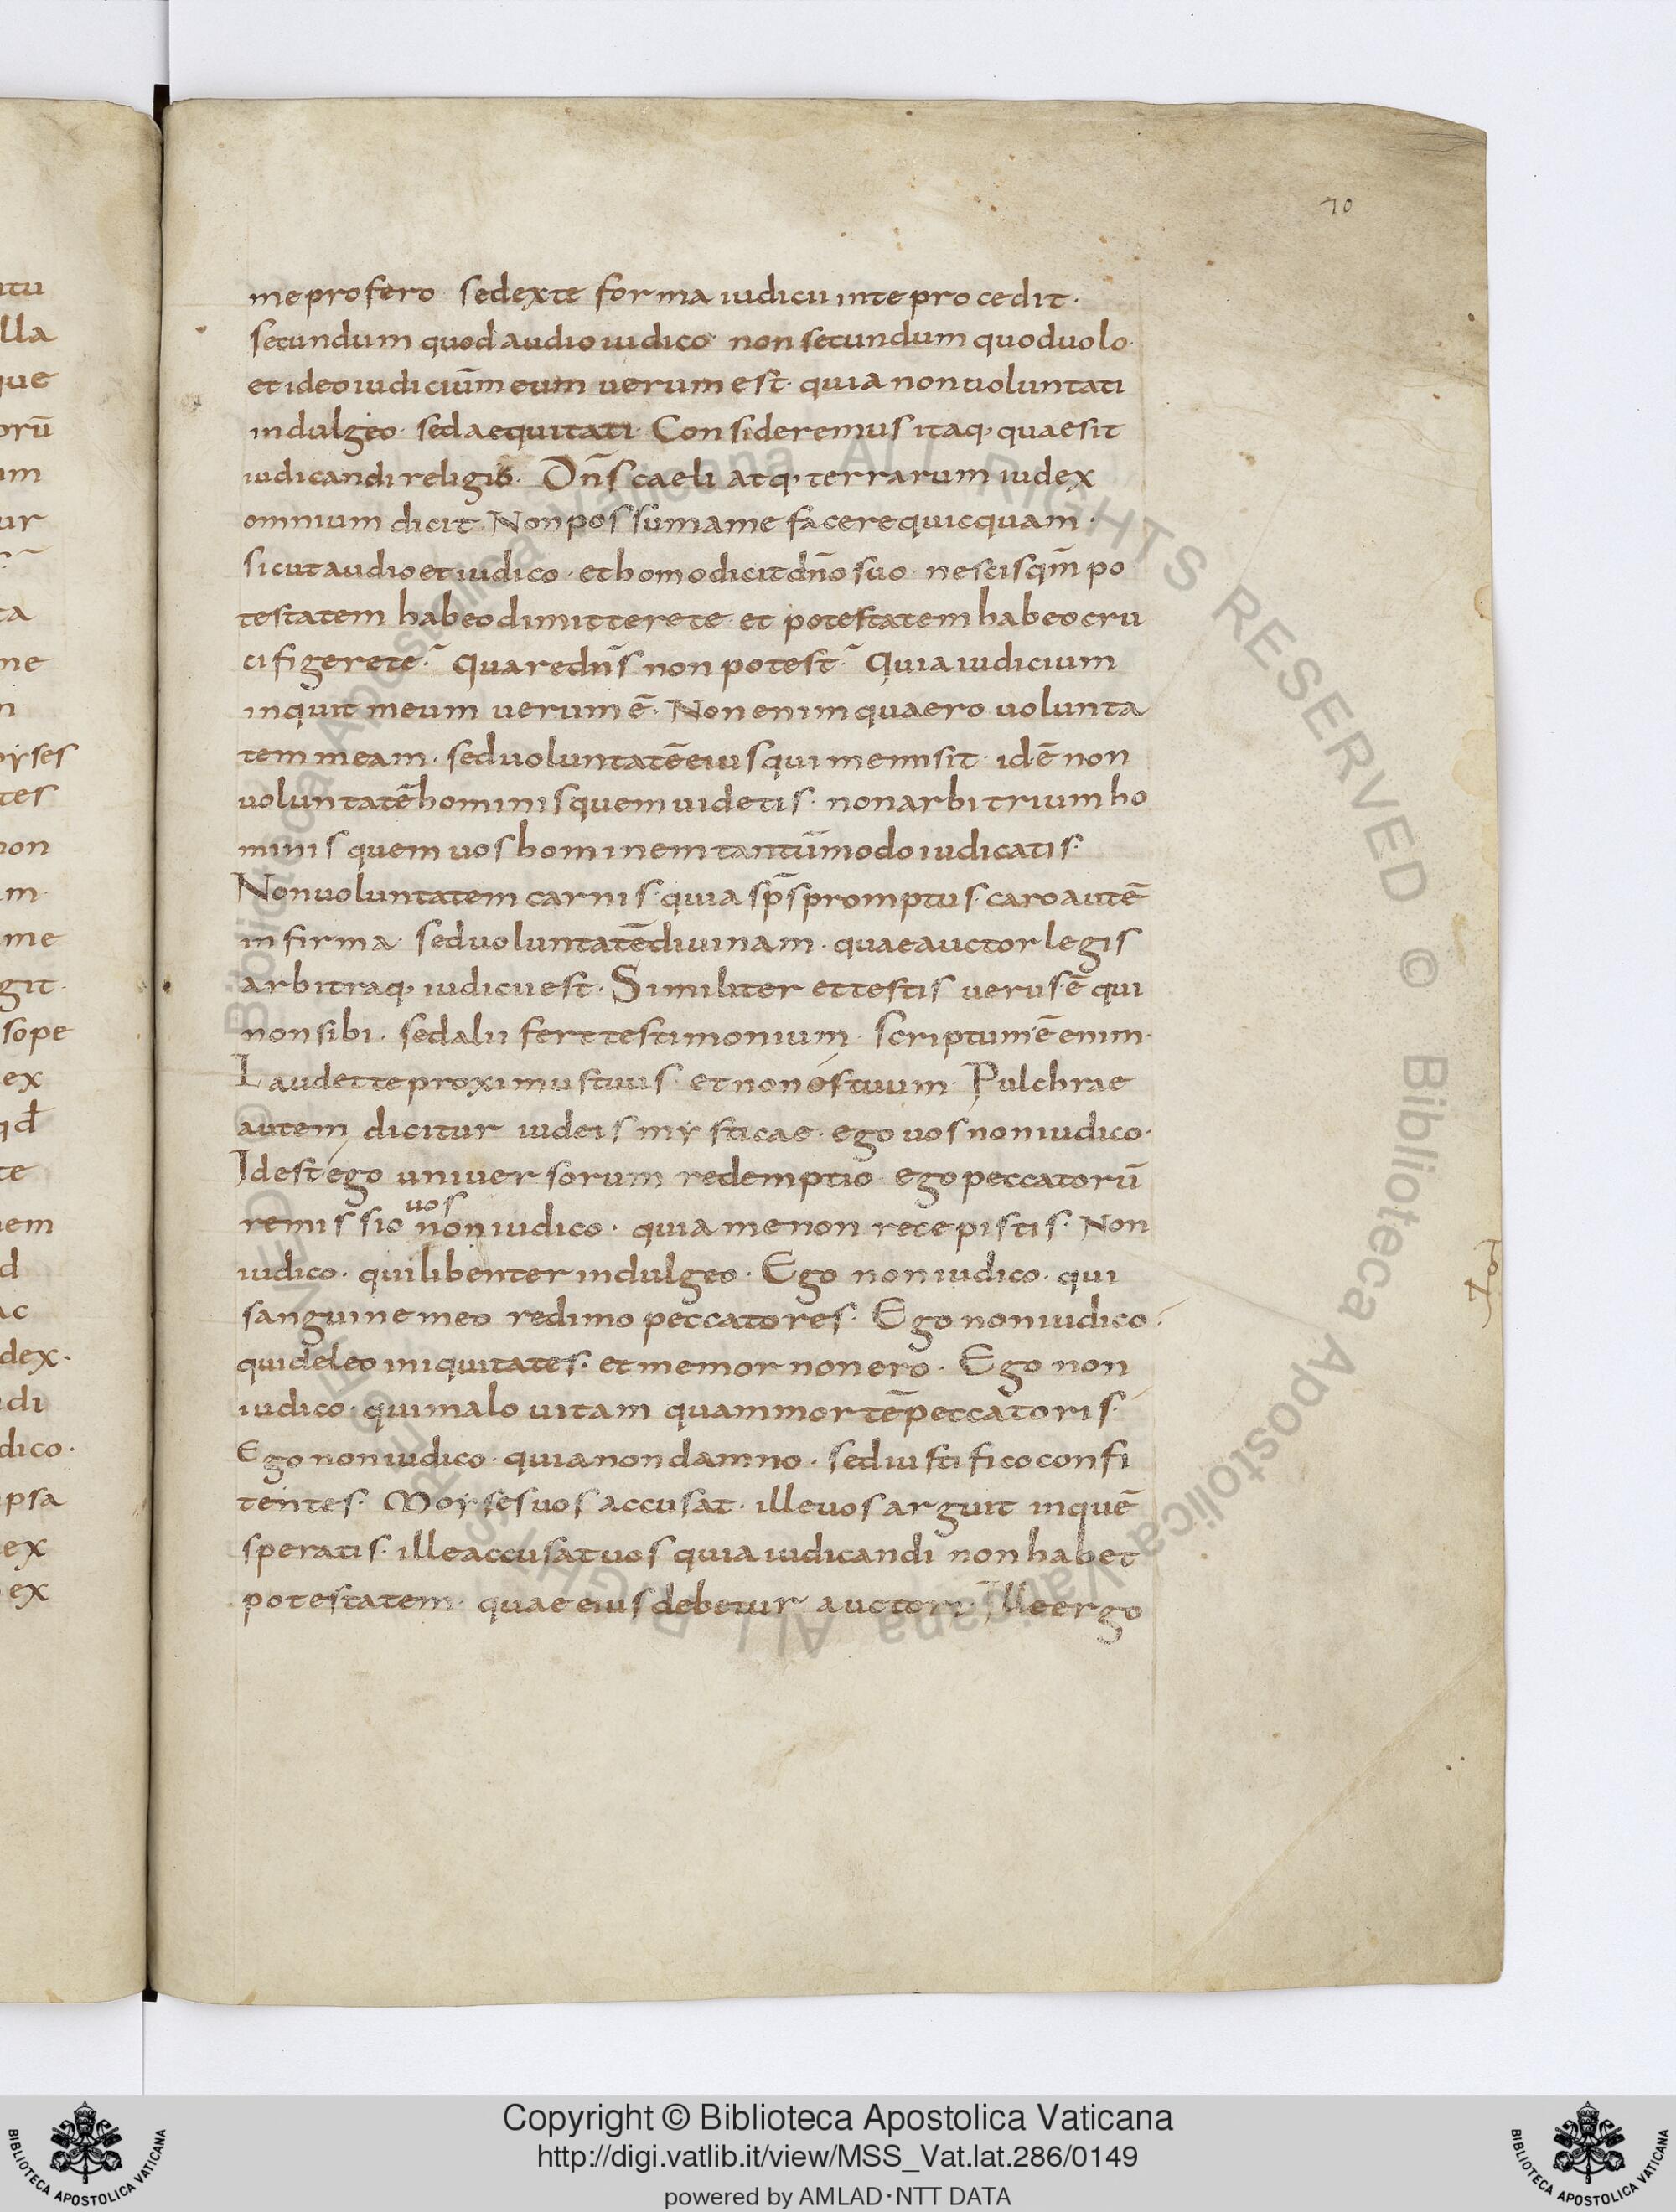 70
me profero sed ex te forma iudicii in te procedit·
secundum quod audio iudico· non secundum quod uolo·
et ideo iudiciū meum uerum est· quia non uoluntati
indulgeo· sed aequitati· Consideremus itaq; quae sit
iudicandi religio· Dn̄s caeli atq; terrarum iudex
omnium dicit· Non possum a me facere quicquam·
sicut audio et iudico· et homo dicit dn̄o suo· nescis qm̄ po
testatem habeo dimittere te et potestatem habeo cru
cifigere te? Quare dn̄s non potest? Quia iudicium
inquit meum uerum ē· Non enim quaero uolunta
tem meam· sed uoluntatē eius qui me misit· id ē non
uoluntatē hominis quem uidetis· non arbitrium ho
minis quem uos hominem tantūmodo iudicatis·
Non uoluntatem carnis· quia sp̄s promptus· caro autē
infirma· sed uoluntatē diuinam· quae auctor legis
arbitraq; iudicii est· Similiter et testis uerus ē qui
non sibi· sed alii fert testimonium· scriptum ē enim·
Laudet te proximus tuus et non ós tuum· Pulchrae
autem dicitur iudeis mysticae· ego uos non iudico·
Id est ego uniuersorum redemptio ego peccatorū
uos
remissio non iudico· quia me non recepistis· Non
iudico· qui libenter indulgeo· Ego non iudico· qui
sanguine meo redimo peccatores· Ego non iudico·
qui deleo iniquitates· et memor non ero· Ego non
iudico· qui malo uitam quam mortē peccatoris·
Ego non iudico· quia non damno· sed iustifico confi
tentes· Moyses uos accusat· ille uos arguit in quē
speratis· ille accusat uos quia iudicandi non habet
potestatem· quae eius debetur auctori· Ille ergo
itu
lla
que
orū
um
ur
ta
me
oyses
tes
non
m·
me
git·
sope
ex
qd̄
te
em
d
ac
dex·
di
dico·
psa
ex
ex
© Biblioteca Apostolica Vaticana ALL RIGHTS RESERVED
© Biblioteca Apostolica Vaticana ALL RIGHTS RESERVED
Copyright © Biblioteca Apostolica Vaticana
http://digi.vatlib.it/view/MSS_Vat.lat.286/0149
powered by AMLAD·NTT DATA
BIBLIOTECA APOSTOLICA VATICANA
BIBLIOTECA APOSTOLICA VATICANA